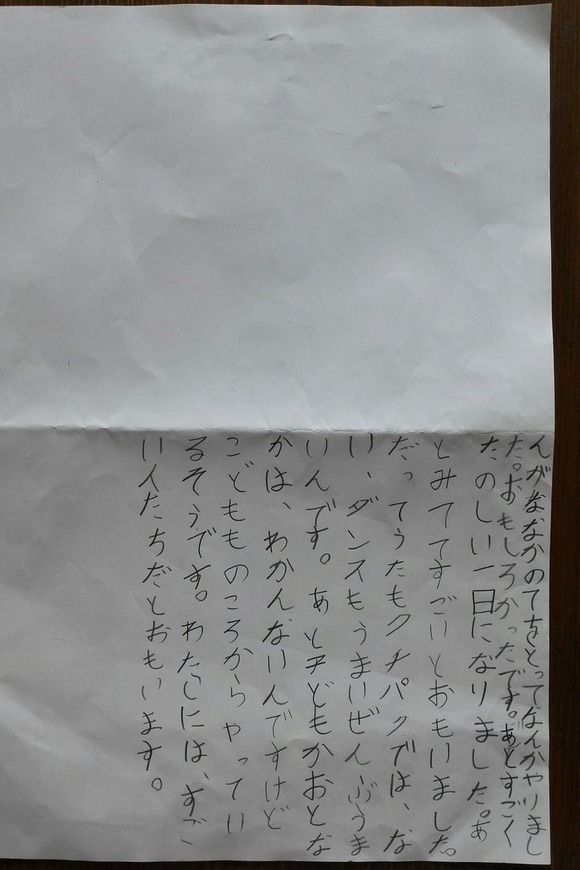 んがななかのてをとってなんかやりまし
た。おもしろかったです。あとすごく
たのしい一日になりました。あ
とみててすごいとおもいました。
だってうたもクチパクでは、な
い、ダンスもうまいぜんぶうま
いんです。あと子どもかおとな
かは、わかんないんですけど
こどもものころからやってい
るそうです。わたしには、すご
い人たちだとおもいます。